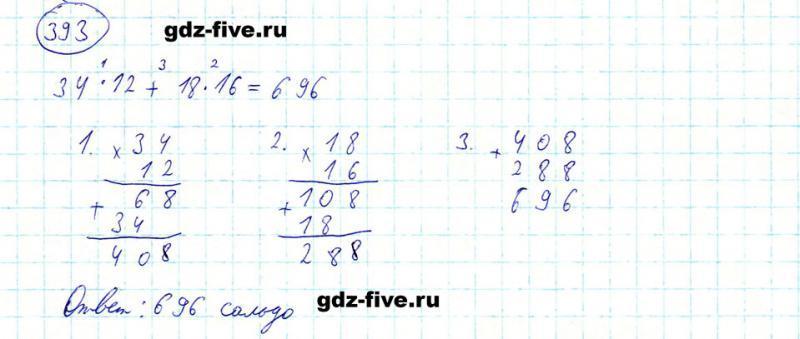 393 gdz-five.ru
1 3 2
34 · 12 + 18 · 16 = 696
1. × 34 2. × 18 3. + 408
12 16 288
+ 68 + 108 696
34 18
408 288
Ответ: 696 сольдо gdz-five.ru